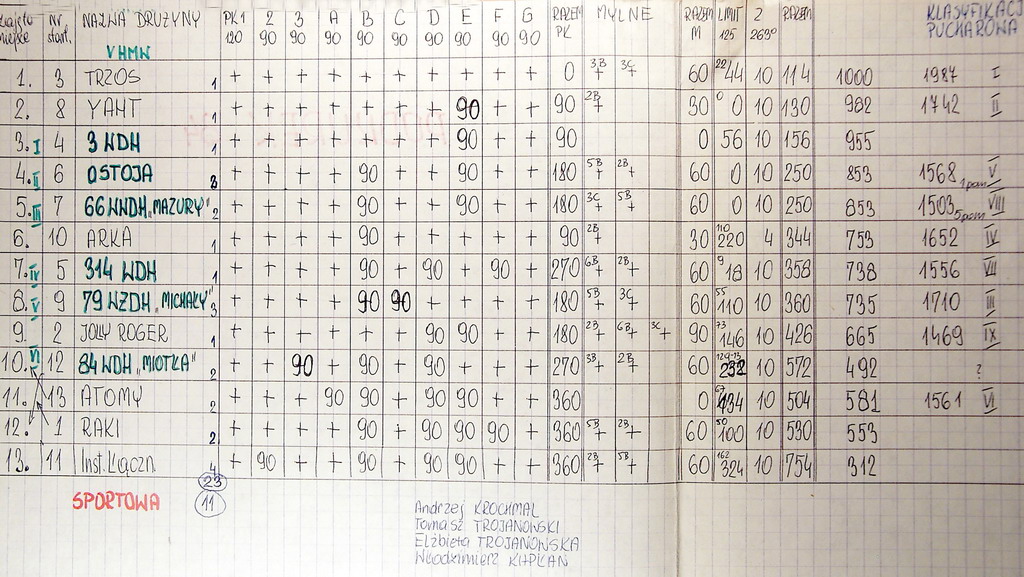 Zajęte miejsce Nr. start. NAZWA DRUŻYNY PK1 120 2 90 3 90 A 90 B 90 C 90 D 90 E 90 F 90 G 90 RAZEM PK MYLNE RAZEM M LIMIT 125 Z 269° RAZEM KLASYFIKACJA PUCHAROWA
VHMW
1. 3 TRZOS 1 + + + + + + + + + + 0 3B+ 3C+ 60 22 44 10 114 1000 1987 I
2. 8 YAHT 1 + + + + + + + 90 + + 90 2B+ 30 0 0 10 130 982 1742 II
3. I 4 3 WDH 1 + + + + + + + 90 + + 90 0 56 10 156 955
4. II 6 OSTOJA 3 + + + + 90 + + 90 + + 180 5B+ 2B+ 60 0 10 250 853 1568 1pom V
5. III 7 66 WNDH „MAZURY" 2 + + + + 90 + + 90 + + 180 3C+ 5B+ 60 0 10 250 853 1503 5pom VIII
6. 10 ARKA 1 + + + + 90 + + + + + 90 2B+ 30 110 220 4 344 753 1652 IV
7. IV 5 314 WDH 1 + + + + 90 + 90 + 90 + 270 6B+ 2B+ 60 9 18 10 358 738 1556 VII
8. V 9 79 WZDH „MICHAŁY" 3 + + + + 90 90 + + + + 180 5B+ 3C+ 60 55 110 10 360 735 1710 III
9. 2 JOLLY ROGER 1 + + + + + + 90 90 + + 180 2B+ 6B+ 3C+ 90 73 146 10 426 665 1469 IX
10. VI 12 84 WDH „MIOTŁA" 2 + + 90 + 90 + 90 + + + 270 3B+ 2B+ 60 232 10 572 492 ?
11. 13 ATOMY 2 + + + 90 90 + 90 90 + + 360 0 67 134 10 504 581 1561 VI
12. 1 RAKI 2 + + + + 90 + 90 90 90 + 360 5B+ 2B+ 60 50 100 10 530 553
13. 11 Inst. Łączn. 4 + 90 + + 90 + 90 90 + + 360 2B+ 5B+ 60 162 324 10 754 312
23
SPORTOWA 11
Andrzej KROCHMAL
Tomasz TROJANOWSKI
Elżbieta TROJANOWSKA
Włodzimierz KAPŁAN